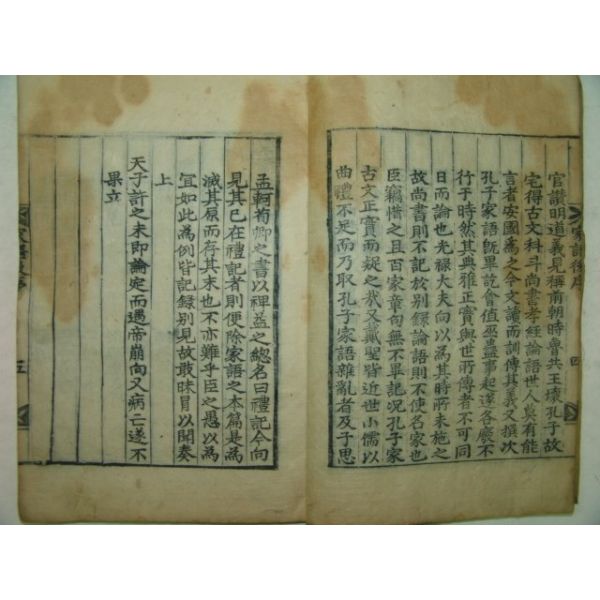 官讚明道義見稱前朝時魯共王壞孔子故
宅得古文科斗尚書孝經論語世人莫有能
言者安國爲之今文讀而訓傳其義又撰次
孔子家語旣畢訖會值巫蠱事起遂各廢不
行于時然其典雅正實與世所傳者不可同
日而論也光祿大夫向以爲其時所未施之
故尚書則不記於別錄論語則不使名家也
臣竊惜之且百家章句無不畢記況孔子家
古文正實而疑之哉又戴聖皆近世小儒以
曲禮不足而乃取孔子家語雜亂者及子思
家語後序
四
孟軻荀卿之書以裨益之總名曰禮記今向
見其已在禮記者則便除家語之本篇是爲
滅其原而存其末也不亦難乎臣之愚以為
宜如此為例皆記錄別見故敢昧冒以聞奏
上
天子許之未即論定而遇帝崩向又病亡遂不
果立
五